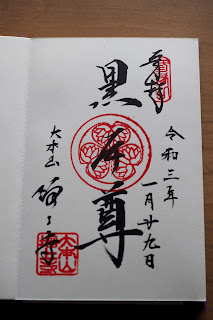 奉拝
令和三年
一月廿九日
黒本尊
大本山 増上寺